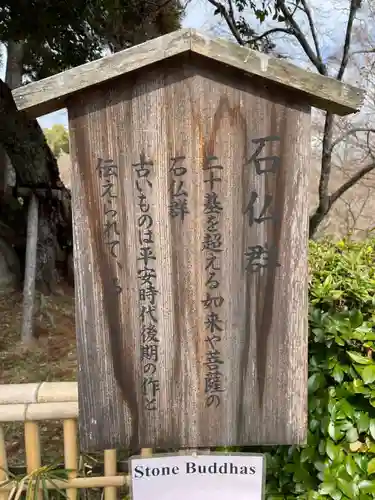 石仏群
二十基を超える如来や菩薩の
石仏群
古いものは平安時代後期の作と
伝えられている
Stone Buddhas